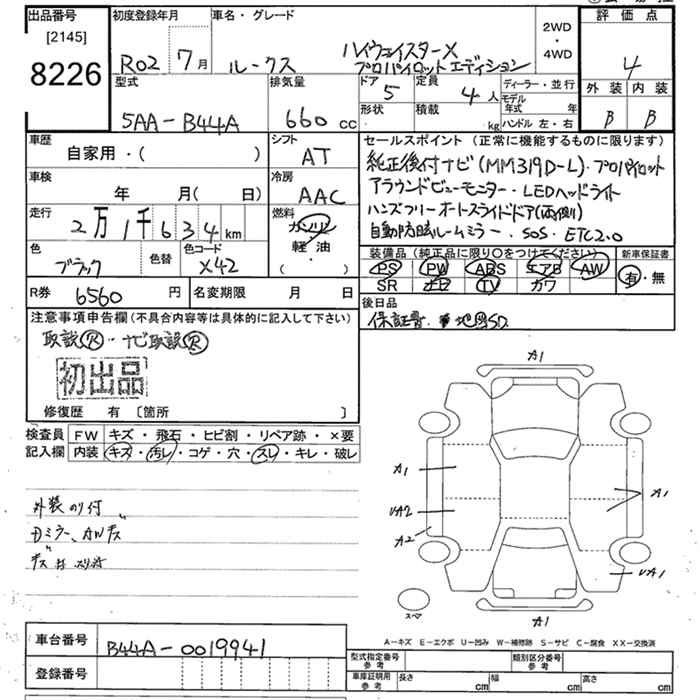 出品番号 初度登録年月 車名・グレード 評価点
[2145]
8226
R02 7月 ルークス ハイウェイスターX
プロパイロットエディション
2WD
・
4WD
4
型式 排気量 ドア 定員 ディーラー・並行 外装 内装
5AA-B44A 660cc 5 4人 モデル年式 年 B B
形状 積載 kg ハンドル 左・右
車歴 シフト セールスポイント (正常に機能するものに限ります)
自家用・( ) AT
純正後付ナビ(MM319D-L)・プロパイロット
車検 冷房
年 月( 日) AAC
アラウンドビューモニター・LEDヘッドライト
走行 燃料
2万1千634km ガソリン
軽・油
・
( )
ハンズフリーオートスライドドア(両側)
自動防眩ルームミラー・SOS・ETC2.0
色 色替 色コード
ブラック X42
装備品(純正品に限り〇をつけてください) 新車保証書
PS PW ABS エアB AW 有・無
SR ナビ TV カワ
R券 6560円 名変期限 月 日
後日品
保証書・地図SD
注意事項申告欄(不具合内容等は具体的に記入して下さい)
取説R・ナビ取説R
初出品
修復歴 有 [箇所 ]
検査員 FW キズ・飛石・ヒビ割・リペア跡・×要
記入欄 内装 キズ・汚レ・コゲ・穴・スレ・キレ・破レ
外装のり付
Dミラー、AWキズ
A1
A1
A1
UA2
A2
UA1
A1
スペア
A-キズ E-エクボ U-凹み W-補修跡 S-サビ C-腐食 XX-交換済
車台番号 B44A-0019941
登録番号
型式指定番号 参考 類別区分番号 参考
車庫証明用 参考 長さ cm 幅 cm 高さ cm